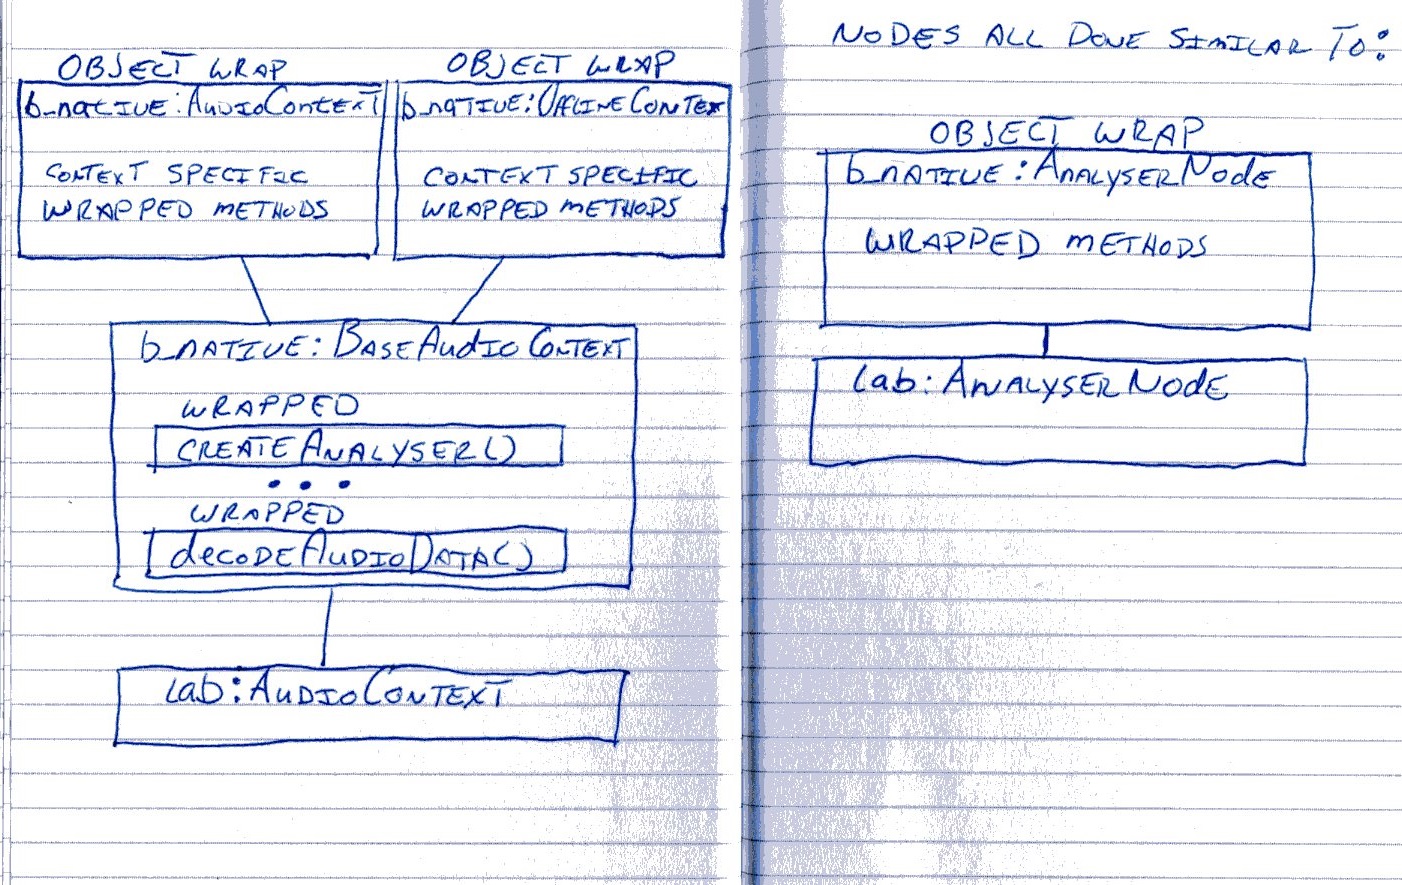 OBJECT WRAP
b_native:AudioContext
CONTEXT SPECIFIC
WRAPPED METHODS
OBJECT WRAP
b_native:OfflineContex
CONTEXT SPECIFIC
WRAPPED METHODS
b_NATIVE:BaseAudioContext
WRAPPED
CREATEANALYSER()
...
WRAPPED
decodeAudioData()
lab:AudioContext
NODES ALL DONE SIMILAR TO:
OBJECT WRAP
b_NATIVE:AnalyserNode
WRAPPED METHODS
lab:AnalyserNode